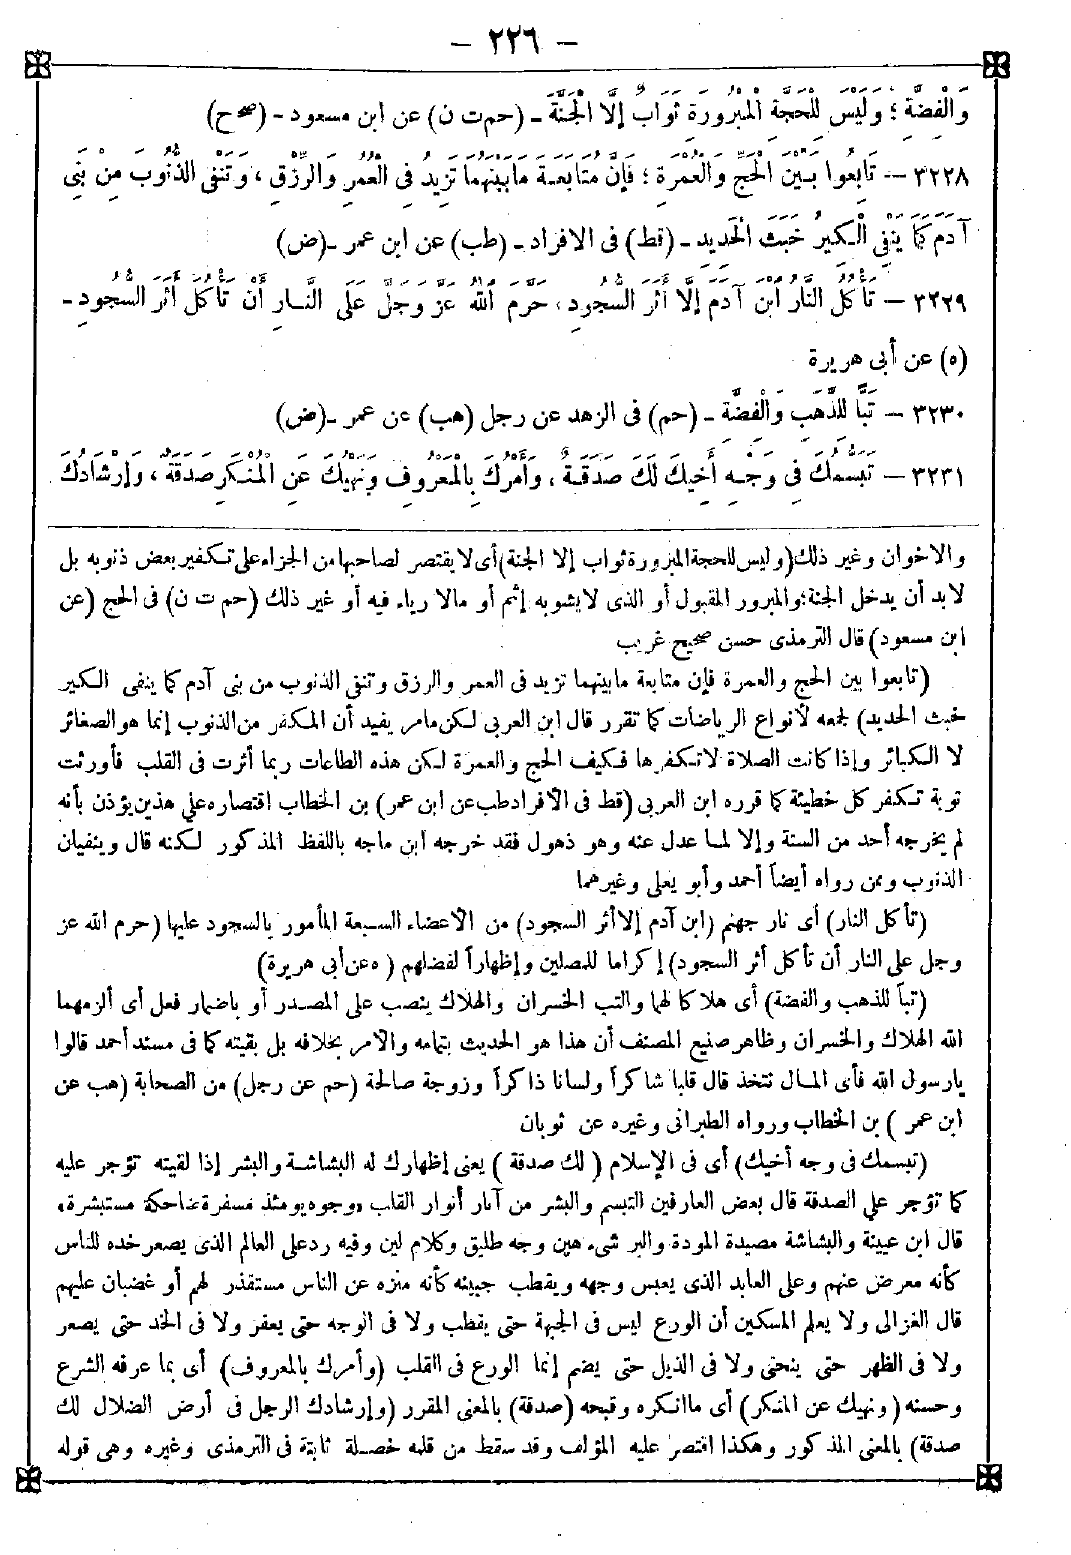 – ٢٢٦ –
وَالْفِضَّةِ ؛ وَلَيْسَ لِلْحَجَّةِ الْمَبْرُورَةِ ثَوَابٌ إِلَّا الْجَنَّةَ ـ (حم ت ن) عن ابن مسعود - (صح ح)
٣٢٢٨ — تَابِعُوا بَيْنَ الْحَجِّ وَالْعُمْرَةِ ؛ فَإِنَّ مُتَابَعَةَ مَا بَيْنَهُمَا تَزِيدُ فِي الْعُمُرِ وَالرِّزْقِ ، وَتَنْفِي الذُّنُوبَ مِنْ بَنِي
آدَمَ كَمَا يَنْفِي الْكِيرُ خَبَثَ الْحَدِيدِ ـ (قط) فى الافراد ـ (طب) عن ابن عمر ـ (ض)
٣٢٢٩ — تَأْكُلُ النَّارُ ابْنَ آدَمَ إِلَّا أَثَرَ السُّجُودِ ، حَرَّمَ اللهُ عَزَّ وَجَلَّ عَلَى النَّارِ أَنْ تَأْكُلَ أَثَرَ السُّجُودِ ـ
(ه) عن أبى هريرة
٣٢٣٠ — تَبًّا لِلذَّهَبِ وَالْفِضَّةِ ـ (حم) فى الزهد عن رجل (هب) عن عمر ـ (ض)
٣٢٣١ — تَبَسُّمُكَ فِي وَجْهِ أَخِيكَ لَكَ صَدَقَةٌ ، وَأَمْرُكَ بِالْمَعْرُوفِ وَنَهْيُكَ عَنِ الْمُنْكَرِ صَدَقَةٌ ، وَإِرْشَادُكَ
والاخوان وغير ذلك (وليس للحجة المبرورة ثواب إلا الجنة) أى لا يقتصر لصاحبها من الجزاء على تكفير بعض ذنوبه بل
لابد أن يدخل الجنة والمبرور المقبول أو الذى لا يشوبه إثم أو مالا رياء فيه أو غير ذلك (حم ت ن) فى الحج (عن
ابن مسعود) قال الترمذى حسن صحيح غريب
(تابعوا بين الحج والعمرة فإن متابعة ما بينهما تزيد فى العمر والرزق وتنفى الذنوب من بنى آدم كما ينفى الكير
خبث الحديد) لجمعه لأنواع الرياضات كما تقرر قال ابن العربى لكن مامر يفيد أن المكفر من الذنوب إنما هو الصغائر
لا الكبائر وإذا كانت الصلاة لا تكفرها فكيف الحج والعمرة لكن هذه الطاعات ربما أثرت فى القلب فأورثت
توبة تكفر كل خطيئة كما قرره ابن العربى (قط فى الأفراد طب عن ابن عمر) بن الخطاب اقتصاره على هذين يؤذن بأنه
لم يخرجه أحد من الستة وإلا لما عدل عنه وهو ذهول فقد خرجه ابن ماجه باللفظ المذكور لكنه قال وينفيان
الذنوب وممن رواه أيضا أحمد وأبو يعلى وغيرهما
(تأكل النار) أى نار جهنم (ابن آدم إلا أثر السجود) من الأعضاء السبعة المأمور بالسجود عليها (حرم الله عز
وجل على النار أن تأكل أثر السجود) إكراما للمصلين وإظهاراً لفضلهم (ه عن أبى هريرة)
(تباً للذهب والفضة) أى هلاكا لهما والتب الخسران والهلاك ينصب على المصدر أو باضمار فعل أى ألزمهما
الله الهلاك والخسران وظاهر صنيع المصنف أن هذا هو الحديث بتمامه والأمر بخلافه بل بقيته كما فى مسند أحمد قالوا
يارسول الله فأى المال نتخذ قال قلبا شاكراً ولسانا ذاكراً وزوجة صالحة (حم عن رجل) من الصحابة (هب عن
ابن عمر ) بن الخطاب ورواه الطبرانى وغيره عن ثوبان
(تبسمك فى وجه أخيك) أى فى الإسلام (لك صدقة) يعنى إظهارك له البشاشة والبشر إذا لقيته تؤجر عليه
كما تؤجر على الصدقة قال بعض العارفين التبسم والبشر من آثار أنوار القلب «وجوه يومئذ مسفرة ضاحكة مستبشرة»
قال ابن عيينة والبشاشة مصيدة المودة والبر شىء هين وجه طليق وكلام لين وفيه رد على العالم الذى يصعر خده للناس
كأنه معرض عنهم وعلى العابد الذى يعبس وجهه ويقطب جبينه كأنه منزه عن الناس مستقذر لهم أو غضبان عليهم
قال الغزالى ولا يعلم المسكين أن الورع ليس فى الجبهة حتى يقطب ولا فى الوجه حتى يعفر ولا فى الخد حتى يصعر
ولا فى الظهر حتى ينحنى ولا فى الذيل حتى يضم إنما الورع فى القلب (وأمرك بالمعروف) أى بما عرفه الشرع
وحسنه (ونهيك عن المنكر) أى ما أنكره وقبحه (صدقة) بالمعنى المقرر (وإرشادك الرجل فى أرض الضلال لك
صدقة) بالمعنى المذكور وهكذا اقتصر عليه المؤلف وقد سقط من قلمه خصلة ثابتة فى الترمذى وغيره وهى قوله